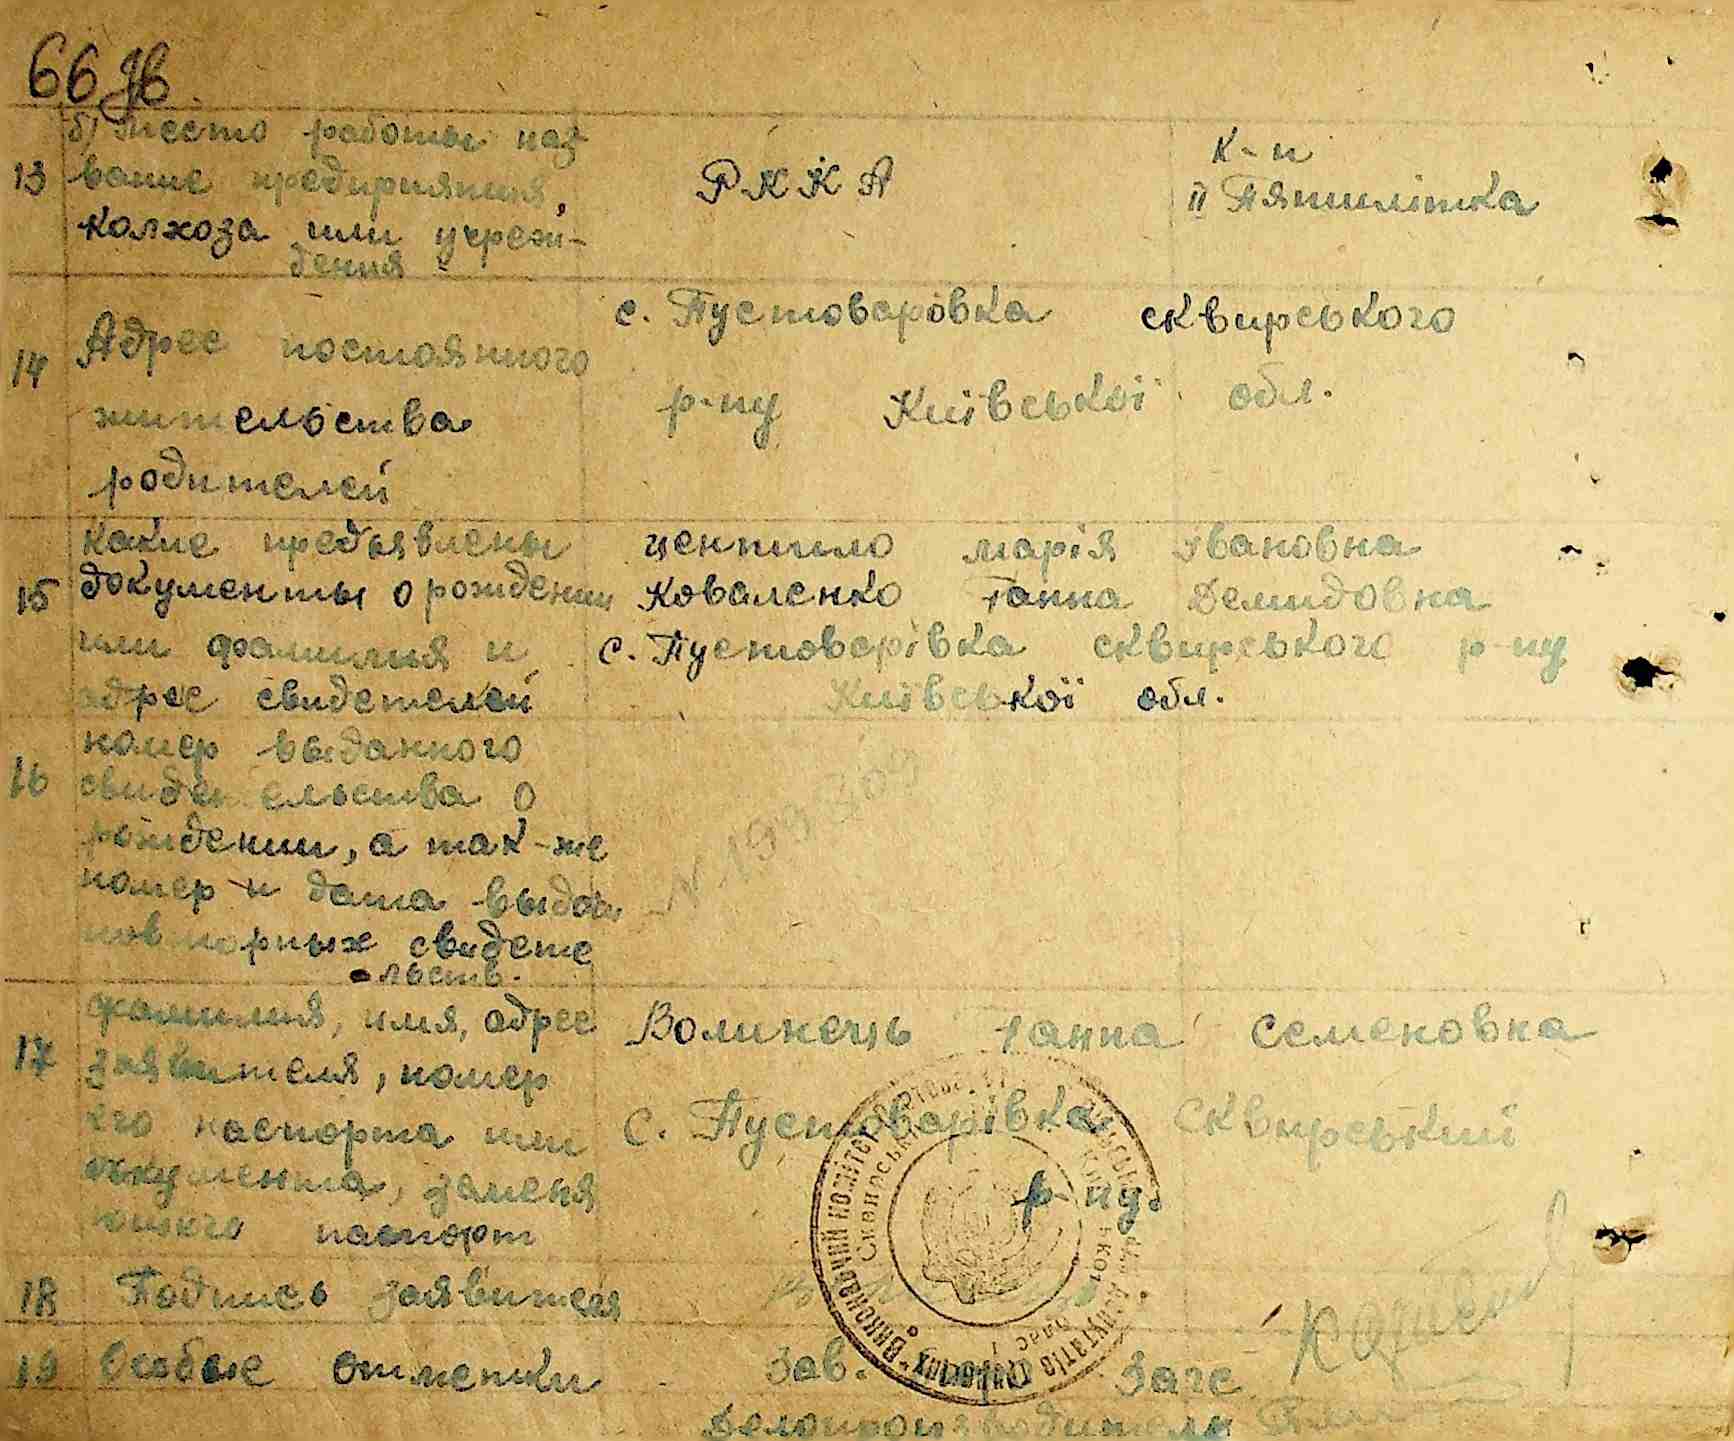 66 зв
б) место работы наз
13 вание предприятия,
колхоза или учреж-
дения
Р К К А
к-п
II Пятилітка
14 Адрес постоянного
жительства
родителей
с. Пустоварівка сквирського
р-ну Київської обл.
какие предъявлены
15 документы о рождении
или фамилия и
адрес свидетелей
марія івановна
Коваленко Ганна Демидовна
с. Пустоварівка сквирського р-ну
Київської обл.
номер выданного
16 свидетельства о
рождении, а так-же
номер и дата выдачи
повторных свидете
льств.
фамилия, имя, адрес
17 заявителя, номер
его паспорта или
документа, заменя
ющего паспорт
Волинець Ганна Семеновна
с. Пустоварівка Сквирський
р-ну.
18 Подпись заявителя
19 Особые отметки
Зав. бюро Загс
Делопроизводитель
Виконавчий комітет